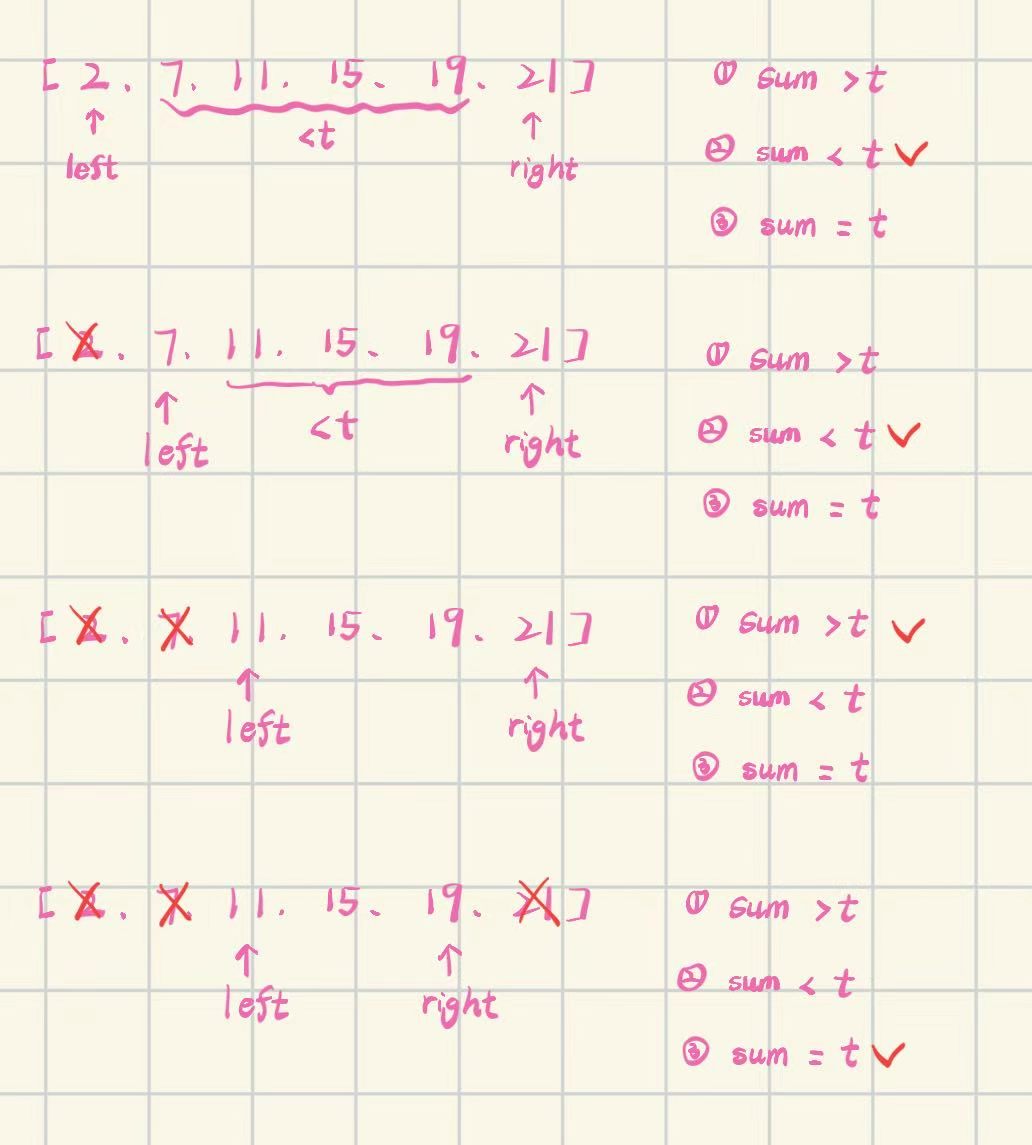 [ 2. 7. 11. 15、 19. 21] ① sum >t
<t
left right ② sum < t ✓
③ sum = t
[ 2. 7. 11. 15、 19. 21] ① sum >t
<t
left right ② sum < t ✓
③ sum = t
[ 2. 7. 11. 15、 19. 21] ① sum >t ✓
left right ② sum < t
③ sum = t
[ 2. 7. 11. 15、 19. 21] ① sum >t
left right ② sum < t
③ sum = t ✓